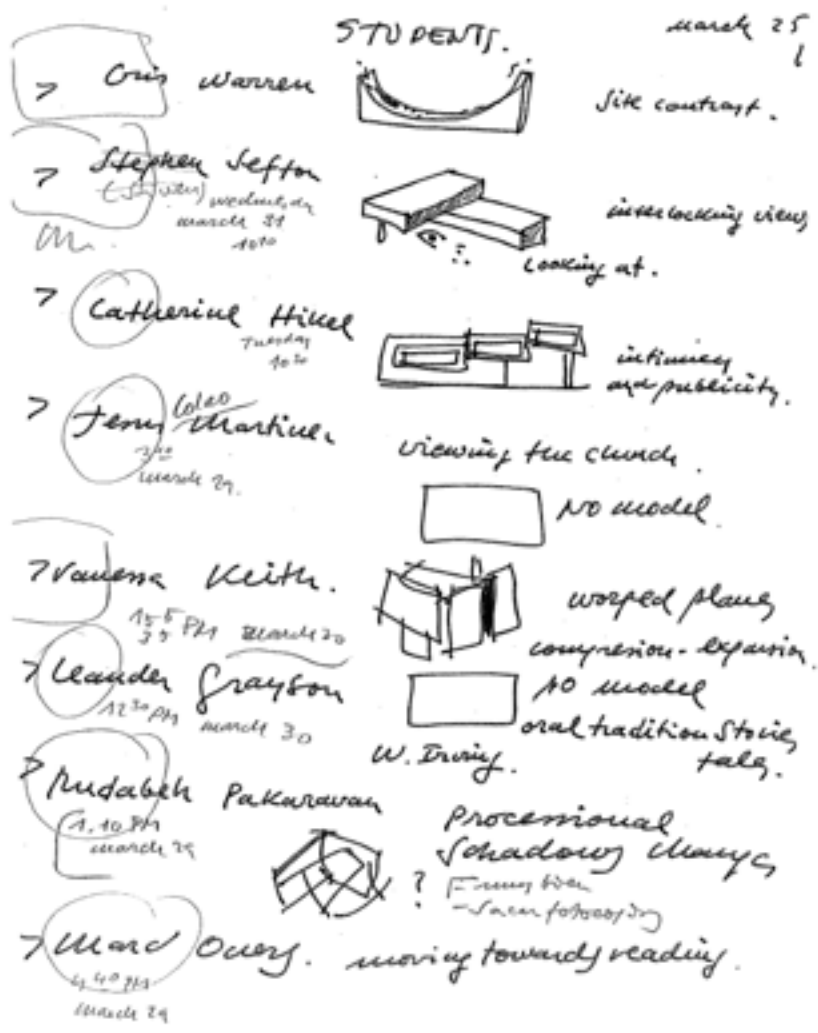 STUDENTS.
march 25
> Cris Warren
Site contrast.
> Stephen Sefton
(Steven) wednesday
march 31
10¹⁰
interlocking views
looking at.
> Catherine Hikel
Tuesday
10³⁰
intimacy
and publicity.
> Jesus Martinez
march 29.
viewing the church.
NO model.
> Vanessa Keith.
PM march 30
worped planes
compresion - expansion.
> Leander Grayson
12³⁰ PM march 30
NO model
oral tradition Stories
tales.
W. Irving.
> Rudabeh Pakaravan
1.10 PM
march 29
Processional
Schadows
?
> Marc Owens. moving towards reading.
4⁴⁰ PM
march 29